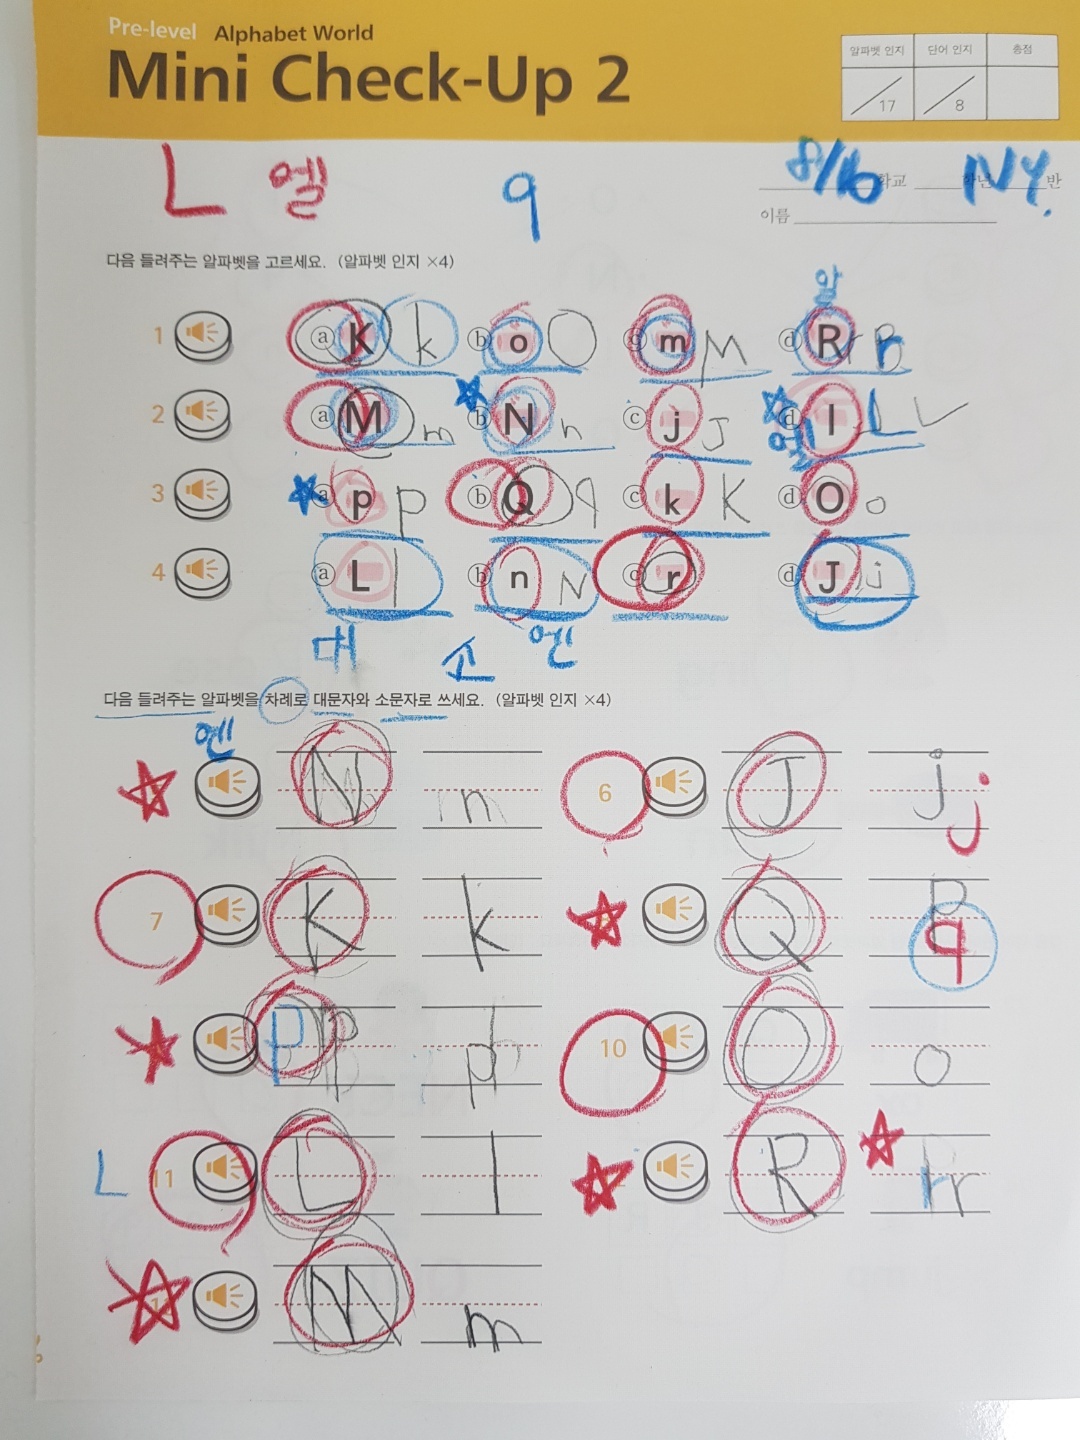 Pre-level Alphabet World
Mini Check-Up 2
알파벳 인지 단어 인지 총점
17 8
L 엘 q 8/16 IVY.
학교 학년 반
이름
다음 들려주는 알파벳을 고르세요. (알파벳 인지 ×4)
알
1 ⓐ K k ⓑ o O ⓒ m M ⓓ R r
2 ⓐ M m ⓑ N n ⓒ j J ⓓ l L
엘
3 ⓐ p P ⓑ Q q ⓒ k K ⓓ O o
4 ⓐ L l ⓑ n N ⓒ r ⓓ J j
대 소 엔
다음 들려주는 알파벳을 차례로 대문자와 소문자로 쓰세요. (알파벳 인지 ×4)
엔
N n 6 J j j
7 K k Q P q
P p 10 O o
L 11 L l R r r
M m